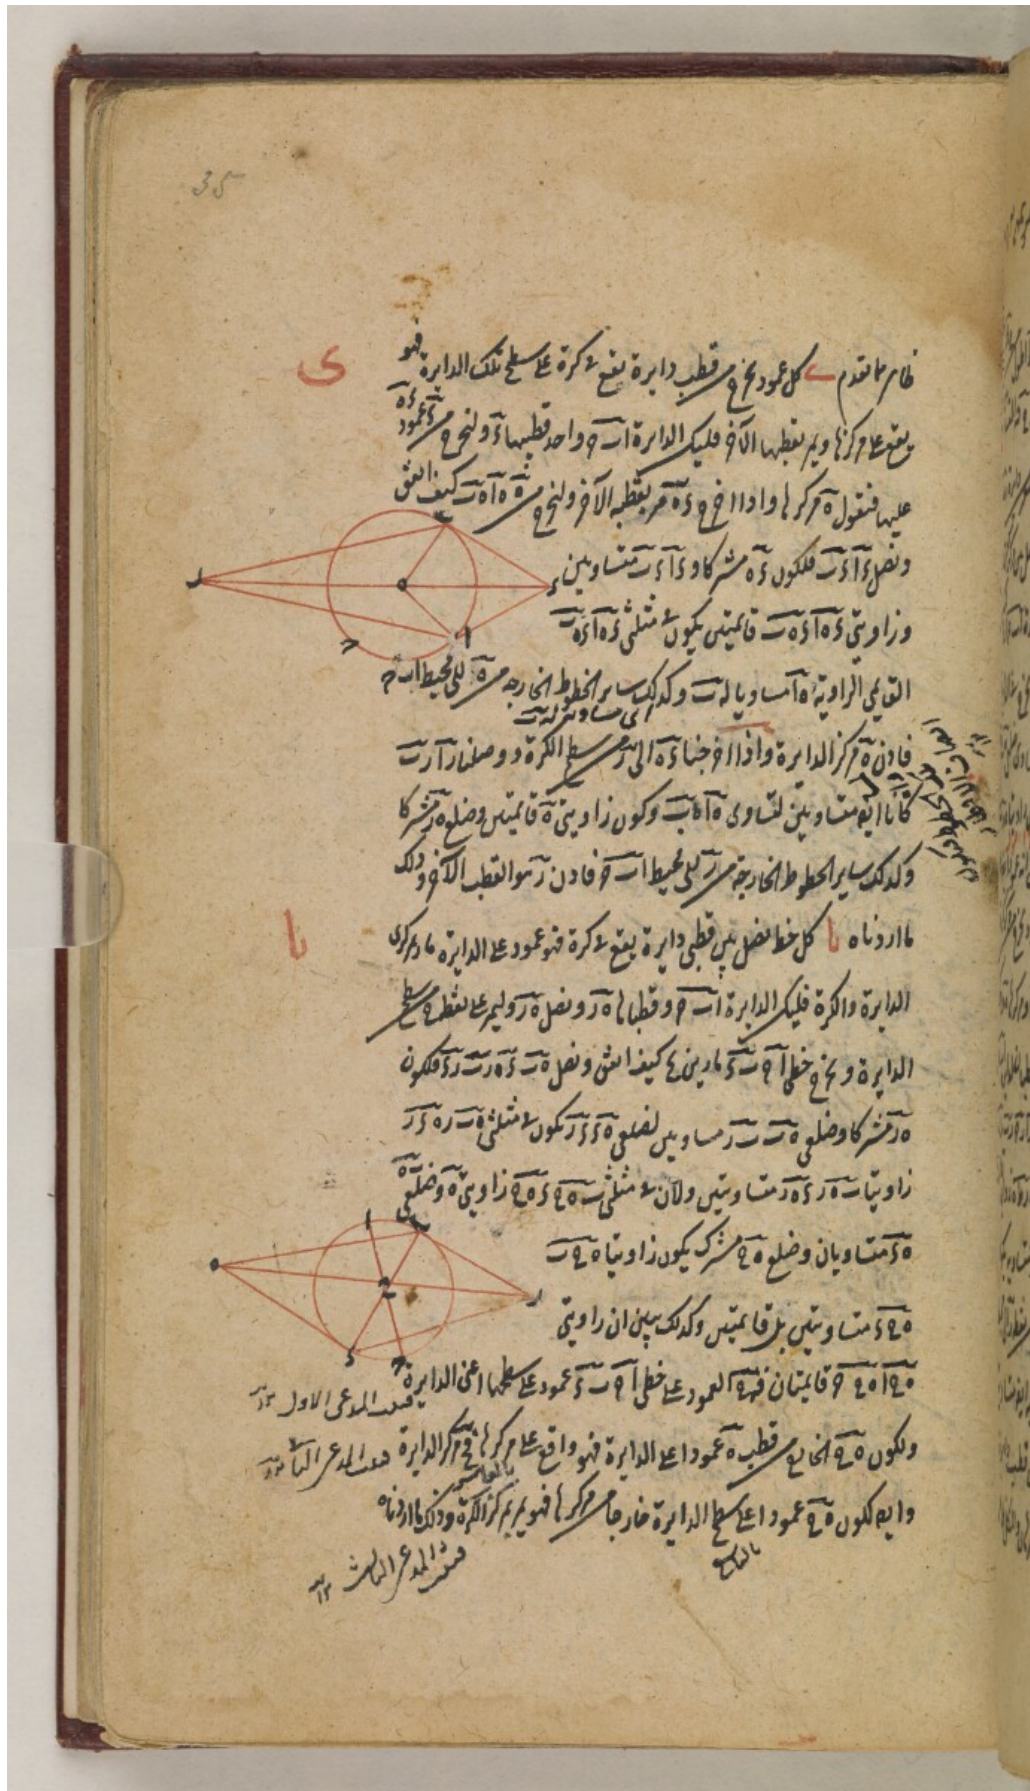 35
ظاهر مما تقدم ى كل عمود يخرج من قطب دايرة يقع في كرة على سطح تلك الدايرة فهو
ى
يقع على مركزها ويمر بقطبها الآخر فليكن الدايرة ا ب ح واحد قطبيها ء ولنخرج من ء عمود ء ه
عليها فنقول ه مركزها واذا اخرج ء ه مر بقطبه الآخر ولنخرج من ه ه ا ه ب كيف اتفق
ونصل ء ا ء ب فلكون ء ه مشتركا و ء ا ء ب متساويين
وزاويتي ء ه ا ء ه ب قايمتين يكون في مثلثي ء ه ا ء ه ب
القايمي الزاوية ه ا مساويا له ب وكذلك ساير الخطوط الخارجه من ه الى محيط ا ب ح
اى مساو له ب
فاذن ه مركز الدايرة واذا اخرجنا ء ه الى ر من سطح الكرة ووصلنا ر ا ر ب
كانا ايضا متساويين لتساوى ه ا ه ب وكون زاويتى ه قايمتين وضلع ه ر مشتركا
وكذلك ساير الخطوط الخارجة من ر الى محيط ا ب ح فاذن ر هو القطب الآخر وذلك
ما اردناه يا كل خط يصل بين قطبى دايرة يقع في كرة فهو عمود على الدايرة مار بمركزى
يا
الدايرة والكرة فليكن الدايرة ا ب ح وقطباها ه ر ونصل ه ر وليمر على نقطة ح من سطح
الدايرة ونخرج خطى ا ح ب ء مارين بها كيف اتفق ونصل ه ب ء ه ر ب ر ء فلكون
ه ر مشتركا وضلعى ه ب ب ر مساويين لضلعى ه ء ء ر يكون في مثلثى ه ب ر ه ء ر
زاويتا ب ه ر ء ه ر متساويتين ولان في مثلثى ب ه ح ء ه ح زاويتى ه وضلعى ه ب
ه ء متساويان وضلع ه ح مشترك يكون زاويتا ه ح ب
ه ح ء متساويتين بل قايمتين وكذلك يبين ان زاويتى
ه ح ا ه ح ح قايمتان فه ح العمود على خطى ا ح ب ء عمود على سطحها اعنى الدايرة
فثبت المدعى الاول ١٢
ولكون ه ح الخارج من قطب ه عمودا على الدايرة فهو واقع على مركزها فح مركز الدايرة
فثبت المدعى الثانى ١٢
وايضا لكون ه ح عمودا على سطح الدايرة خارجا من مركزها فهو يمر بمركز الكرة وذلك ما اردناه
فثبت المدعى الثالث ١٢